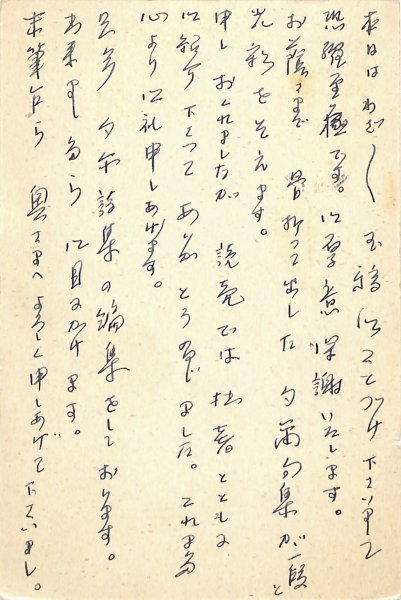 本日はわざ〱玉稿御ことづけ下さいまして
恐縮至極です。御厚意深謝いたします。
お蔭さまで骨折つて出した句集が一段と
光彩をそえます。
申しおくれましたが読売では拙著とともに
御紹介下さつてありがとうございました。これまた
心より御礼申しあげます。
只今 夕 集の編集をしております。
出来ましたら御目にかけます。
末筆ながら 奥さまへよろしく申しあげて下さいまし。